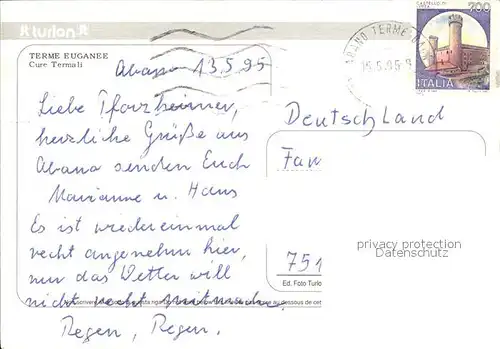 turlon
TERME EUGANEE
Cure Termali
Abano 13.5.95
Liebe Pforzheimer,
herzliche Grüße aus
Abano senden Euch
Marianne u. Hans
Es ist wiedereinmal
recht angenehm hier,
nur das Wetter will
nicht recht mitmachen.
Regen, Regen.
ABANO TERME
15.5.95
700
ITALIA
Deutschland
Fam
751
privacy protection
Datenschutz
Ed. Foto Turlo
au dessous de cet